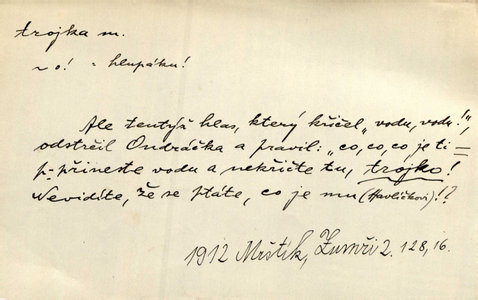 trojka m.
~o! = hlupáku!
Ale tentýž hlas, který křičel „vodu, vodu!",
odstrčil Ondráčka a pravil: „co, co, co je ti =
p- přineste vodu a nekřičte tu, trojko!
Nevidíte, že se ptáte, co je mu (Havlíčkovi)!?
1912 Mrštík, Zumři 2. 128, 16.